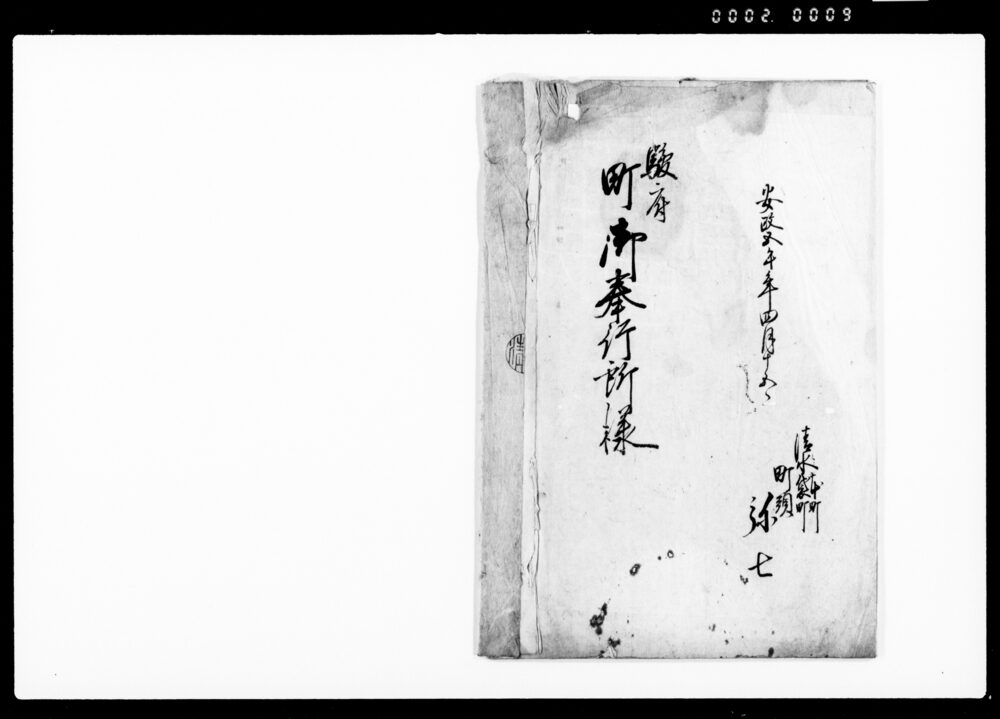 0002 0009
安政五午年四月十五日
清水本町
袋町
町頭
弥七
駿府
町御奉行所様